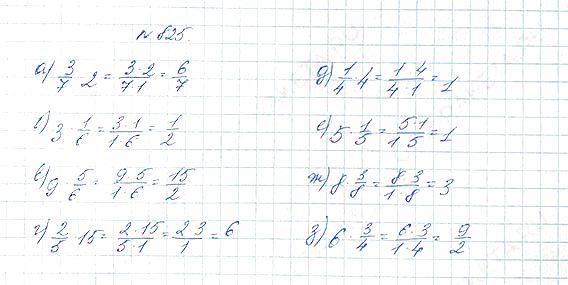 № 825.
а) 3/7 · 2 = 3·2/7·1 = 6/7
б) 3 · 1/6 = 3·1/1·6 = 1/2
в) 9 · 5/6 = 9·5/1·6 = 15/2
г) 2/5 · 15 = 2·15/5·1 = 2·3/1 = 6
д) 1/4 · 4 = 1·4/4·1 = 1
е) 5 · 1/5 = 5·1/1·5 = 1
ж) 8 · 3/8 = 8·3/1·8 = 3
з) 6 · 3/4 = 6·3/1·4 = 9/2